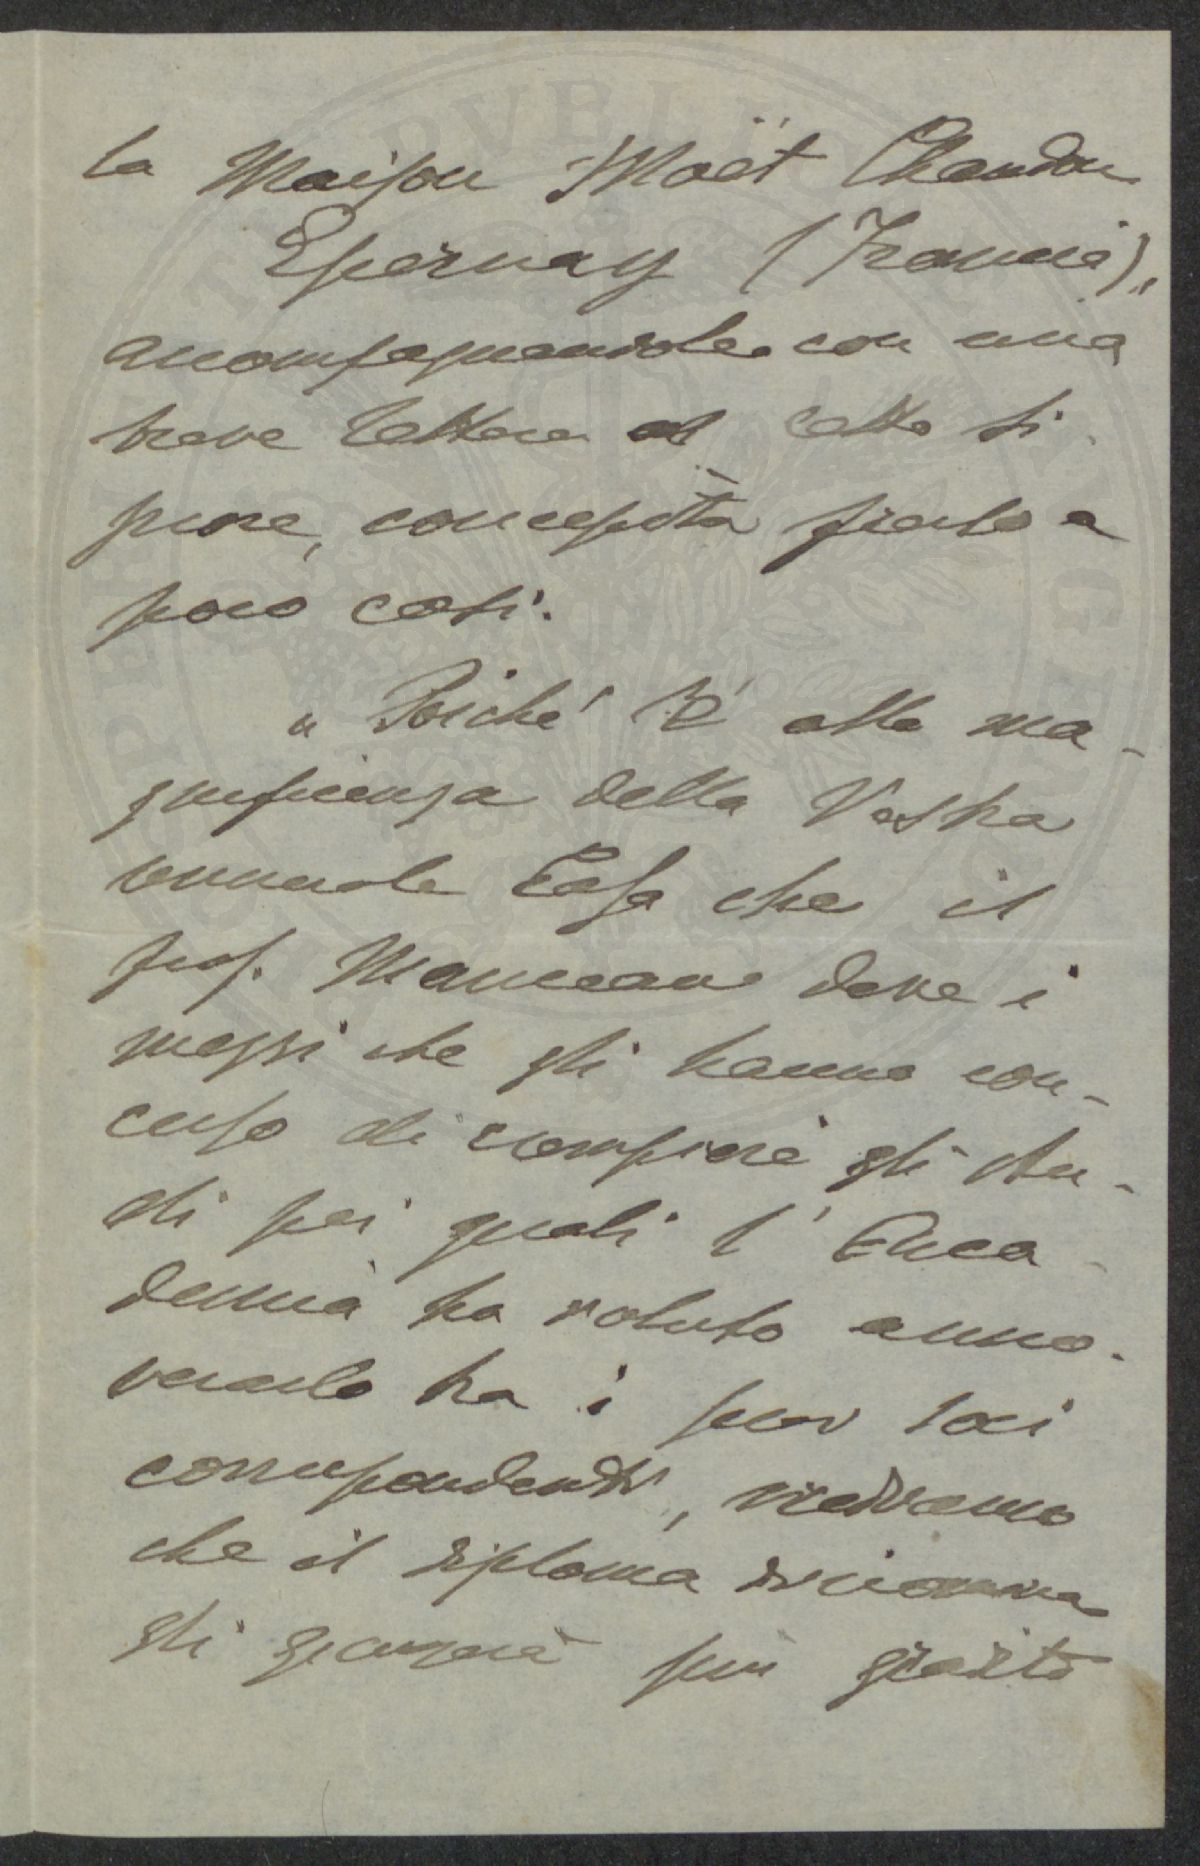 la Maison Moët Chandon
Epernay (Francia)„
accompagnandole con una
breve lettera al detto Si-
gnore, concepita presso a
poco così:
„ Poichè è alla ma-
gnificenza della Vostra
Casa che il
prof. Manceau deve i
mezzi che gli hanno con-
cesso di compiere gli stu-
di pei quali l'Acca-
demia ha voluto anno-
verarlo fra i suoi soci
corrispondenti, crediamo
che il diploma
gli giungerà più gradito